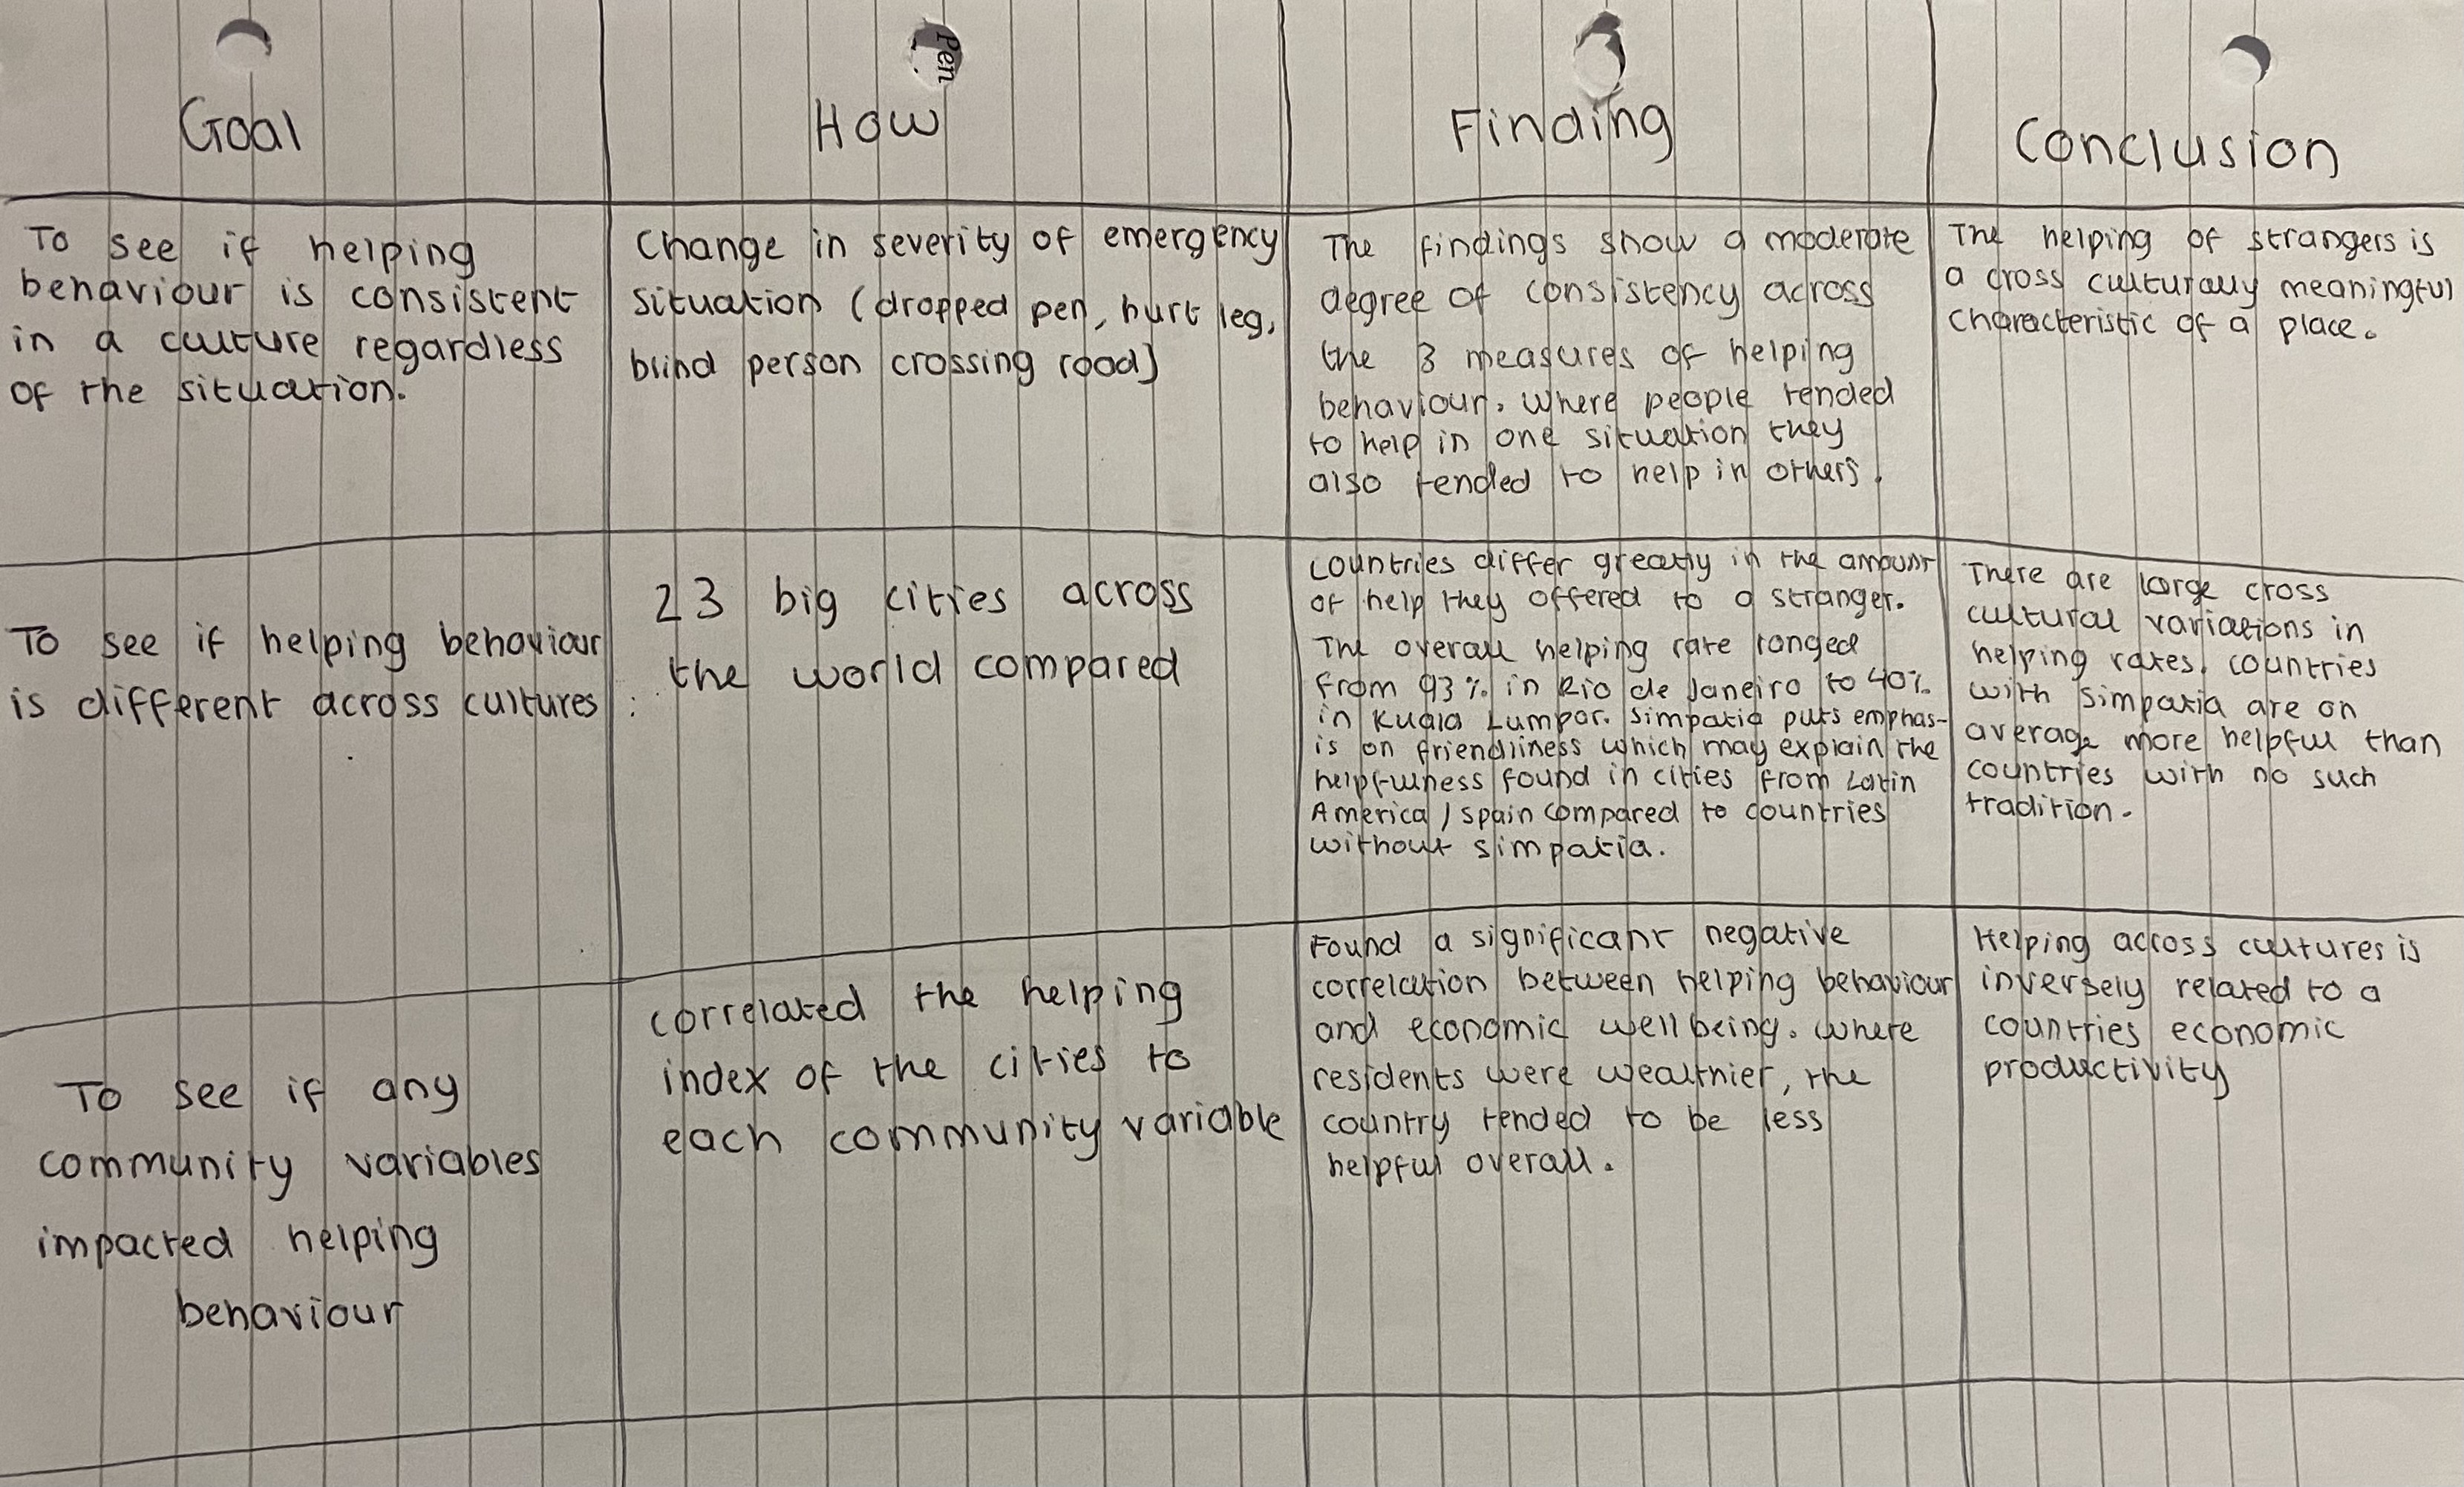 Pen
Goal
How
Finding
Conclusion
To see if helping
behaviour is consistent
in a culture regardless
of the situation.
Change in severity of emergency
situation (dropped pen, hurt leg,
blind person crossing road)
The findings show a moderate
degree of consistency across
the 3 measures of helping
behaviour. Where people tended
to help in one situation they
also tended to help in others.
The helping of strangers is
a cross culturally meaningful
characteristic of a place.
To see if helping behaviour
is different across cultures
23 big cities across
the world compared
Countries differ greatly in the amount
of help they offered to a stranger.
The overall helping rate ranged
from 93% in Rio de Janeiro to 40%
in Kuala Lumpor. Simpatia puts emphas-
is on friendliness which may explain the
helpfulness found in cities from Latin
America / Spain compared to countries
without simpatia.
There are large cross
cultural variations in
helping rates. Countries
with simpatia are on
average more helpful than
countries with no such
tradition.
To see if any
community variables
impacted helping
behaviour
Correlated the helping
index of the cities to
each community variable
Found a significant negative
correlation between helping behaviour
and economic wellbeing. Where
residents were wealthier, the
country tended to be less
helpful overall.
Helping across cultures is
inversely related to a
countries economic
productivity